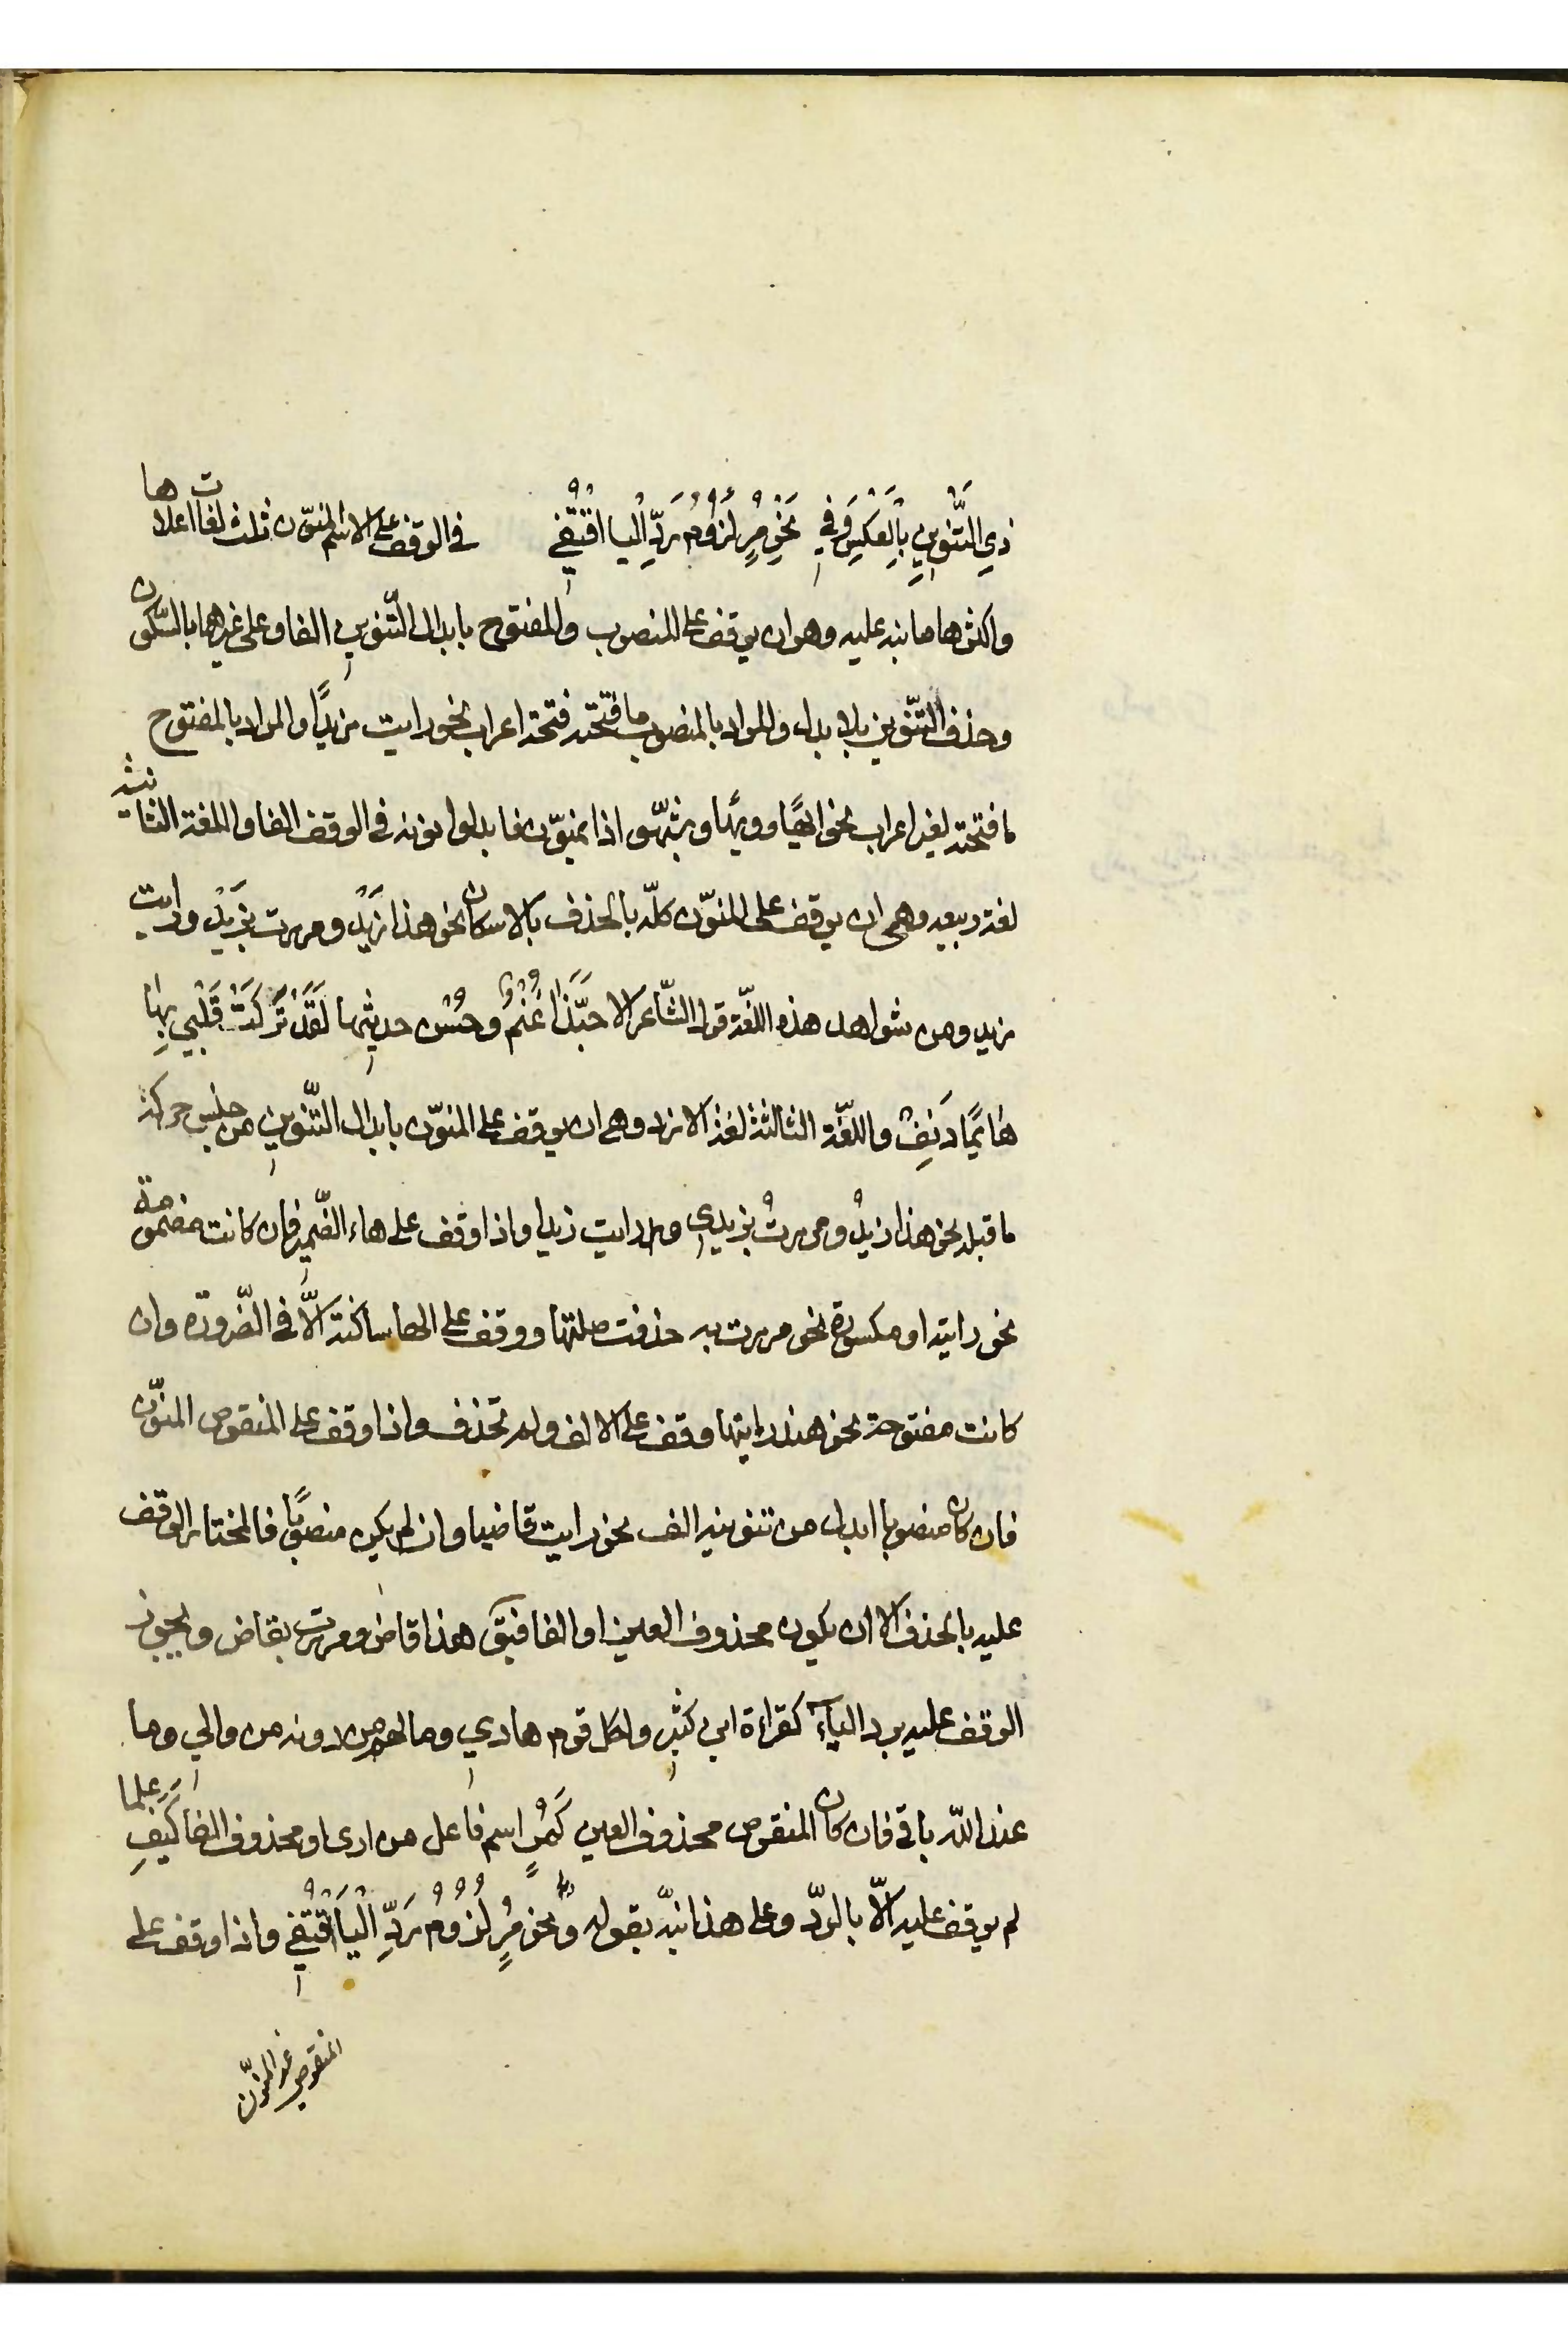 ذِي التَّنْوِينِ بِالْعَكْسِ وَفِي نَحْوِ مُرٍ لُزُومُ رَدِّ الْيَا اقْتُفِي في الوقف على الاسم المنوّن ثلث لغات اعلاها
واكثرها ما نبه عليه وهو ان يوقف على المنصوب والمفتوح بابدال التّنوين الفا وعلى غيرهما بالسّكون
وحذف التّنوين بلا بدل والمراد بالمنصوب ما فتحته فتحة اعراب نحو رايت زيدًا والمراد بالمفتوح
ما فتحته لغير اعراب نحو ايهًا وويهًا وشبّهوا اذا بمنوّن فابدلوا نونه في الوقف الفا واللغة الثانية
لغة ربيعه وهى ان يوقف على المنوّن كلّه بالحذف بالاسكان نحو هذا زَيْدْ ومررت بزَيْدْ ورايت
زيد ومن شواهد هذه اللّغة قول الشّاعر الا حَبَّذَا غُنْمٌ وحُسْن حديثِها لَقَدْ تَرَكَتْ قَلْبِي بِهَا
هَائِمًا دَنِفْ واللّغة الثالثة لغة الازد وهى ان يوقف على المنوّن بابدال التّنوين من جنس حركة
ما قبله نحو هذا زيدُ ومررتُ بزيدي ورايت زيدا واذا وقف على هاء الضّمير فان كانت مضمومة
نحو رايته او مكسورة نحو مررت به حذفت صلتها ووقف على الها ساكنة الاّ في الضّرورة وان
كانت مفتوحة نحو هند رايتها وقف على الالف ولم تحذف واذا وقف على المنقوص المنوّن
فان كان منصوبا ابدل من تنوينه الف نحو رايت قاضيا وان لم يكن منصوبًا فالمختار الوقف
عليه بالحذف الا ان يكون محذوف العين او الفا فتقول هذا قاض ومررت بقاض ويجوز
الوقف عليه برد اليآء كقراءة ابن كثيرٍ ولكل قوم هادي وما لهم من دونه من والي وما
عند اللّه باقي فان كان المنقوص محذوف العين كَمُرٍ اسم فاعل من ارى او محذوف الفا كَيَفِ علما
لم يوقف عليه الاّ بالردّ وعلى هذا نبّه بقوله ونحو مُرٍ لُزُومُ رَدِّ الْيَا اقْتُفِي واذا وقف على
المنقوص غير المنوّن